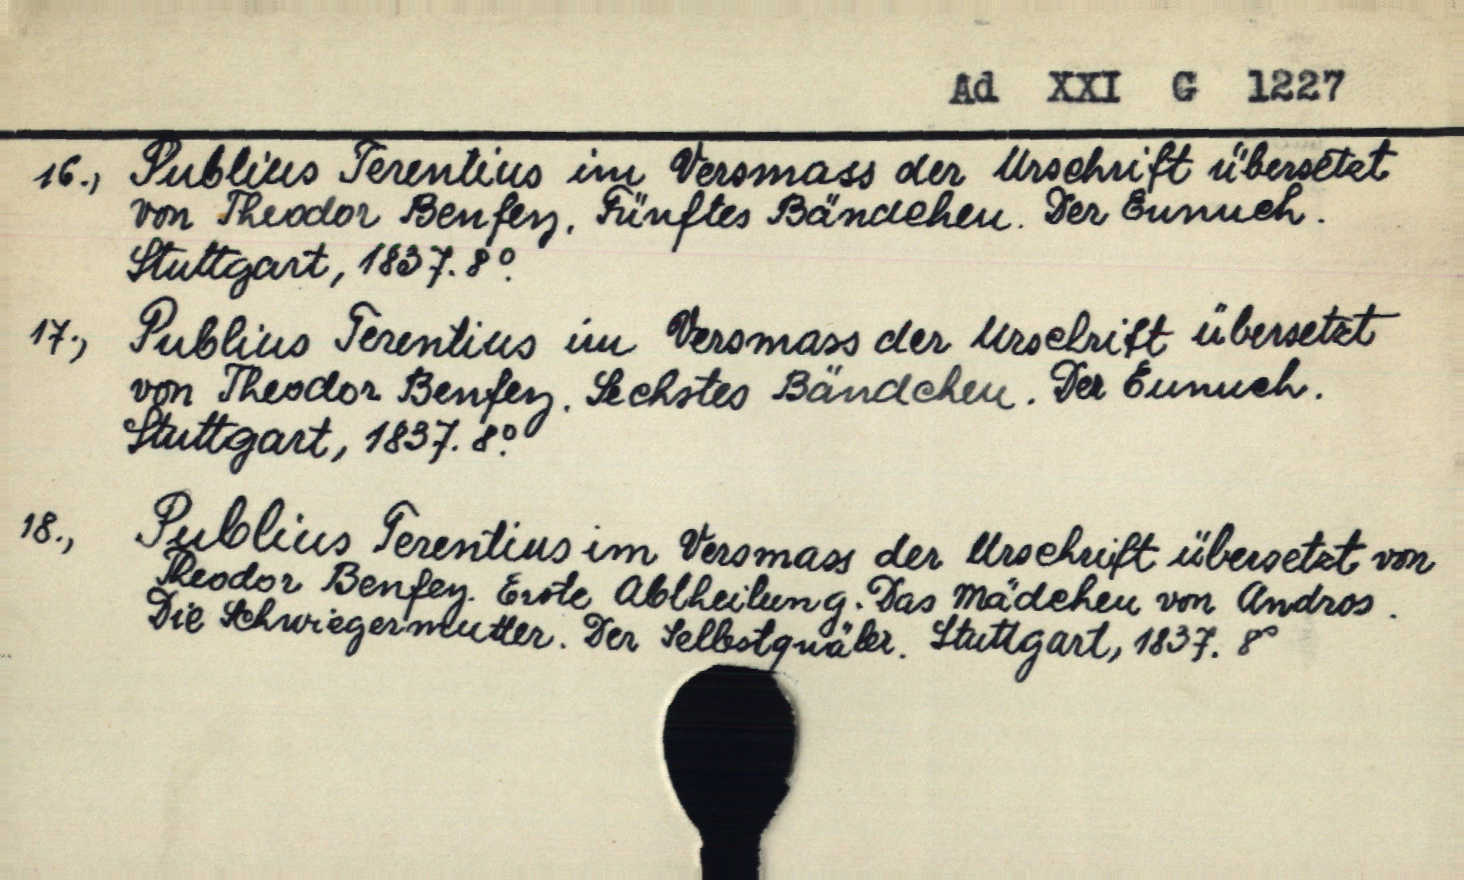 Ad XXI G 1227
16., Publius Terentius im Versmass der Urschrift übersetzt
von Theodor Benfey. Fünftes Bändchen. Der Eunuch.
Stuttgart, 1837. 8°.
17., Publius Terentius im Versmass der Urschrift übersetzt
von Theodor Benfey. Sechstes Bändchen. Der Eunuch.
Stuttgart, 1837. 8°.
18., Publius Terentius im Versmass der Urschrift übersetzt von
Theodor Benfey. Erste Abtheilung. Das Mädchen von Andros.
Die Schwiegermutter. Der Selbstquäler. Stuttgart, 1837. 8°